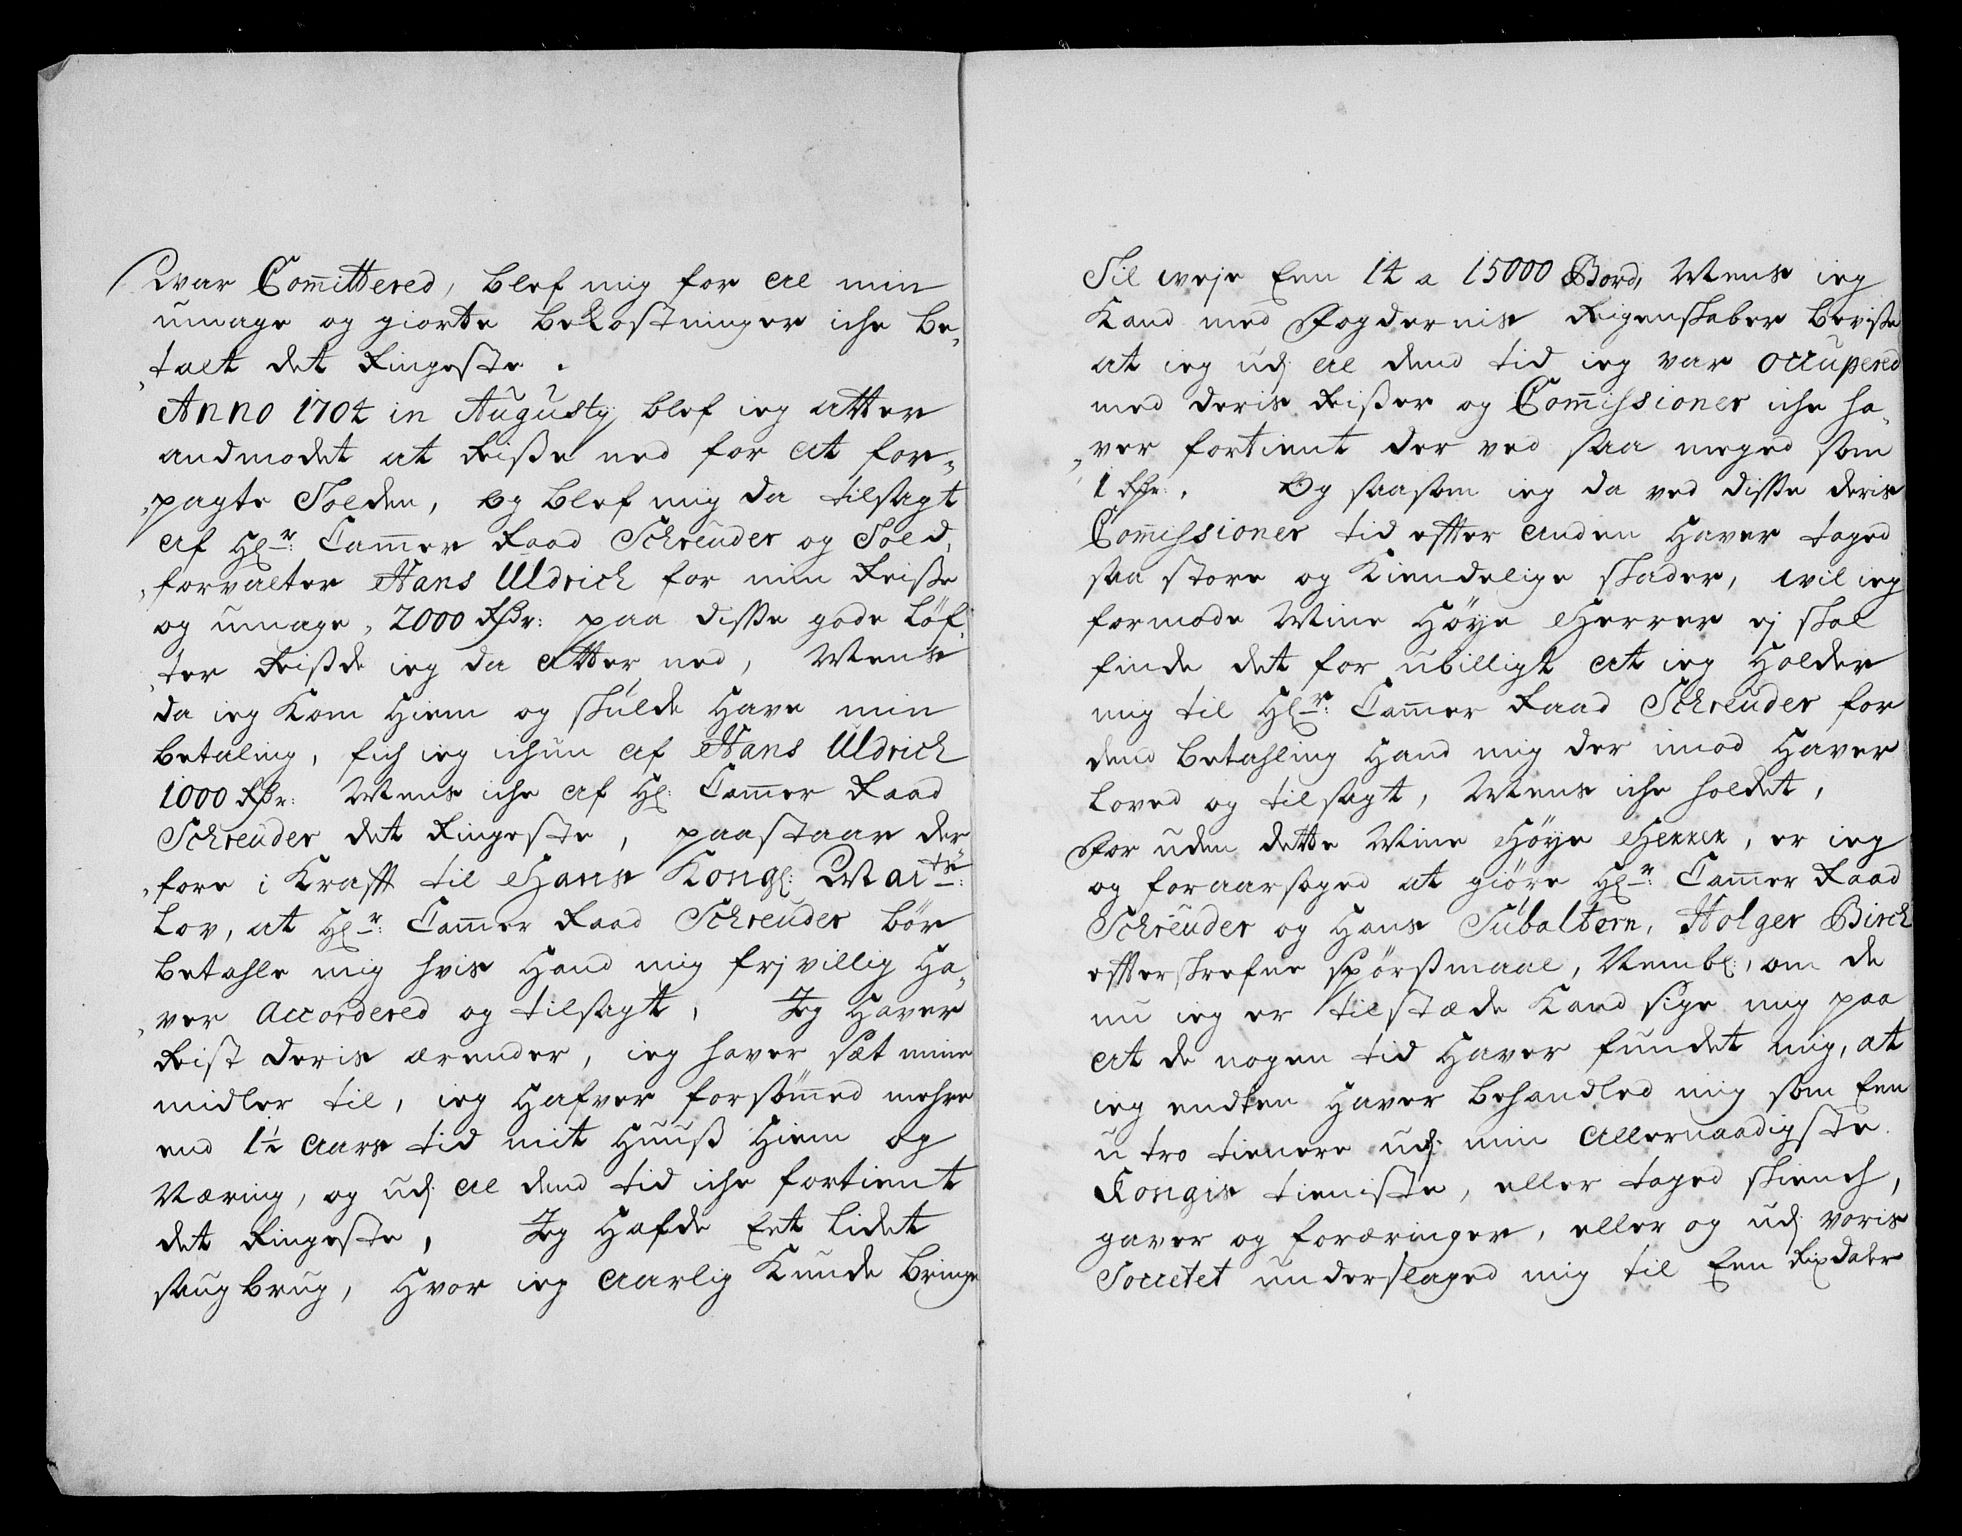 war Com̅ittered, blef mig for al min
umage og giorte bekostninger iche be„
„talt det Ringeste.
Anno 1704 in Augustj blef ieg atter
andmodet at Reiße ned for at for„
„pagte Tolden, og blef mig da tilsagt
af Hl:r Cam̅er Raad Schreuder og Told„
„forvalter Hans Uldrich for min Reiße
og umage, 2000 Rdr: paa disse gode Løf„
„ter Reißde ieg da atter ned, Mens
da ieg kom hiem og skulde have min
betaling, fich ieg ichun af Hans Uldrich
1000 Rdr: Mens iche af Hl: Cam̅er Raad
Schreuder det Ringeste, paastaar der„
„fore i Krafft til Hans Kongl: Maits:
Lov, at Hl:r Cam̅er Raad Schreuder bør
betahle mig hvis hand mig frj villig ha„
„ver Accordered og tilsagt, Jeg haver
Reist deris ærender, ieg haver sæt mine
midler til, ieg hafver forsøm̅ed mehre
end 1½ Aars tid mit Huuß hiem og
Næring, og udj al dend tid iche fortient
det Ringeste, Jeg hafde Eet lidet
saugbrug, hvor ieg aarlig kunde bringe
Til weje Een 14 a 15000 Bord, Mens ieg
kand med Fogdernis Reigenskaber beviße
at ieg udj al dend tid ieg var occupered
med deris Reißer og Com̅issioner iche ha„
„ver fortient der ved saa meged som
1 Rdr:. Og saasom ieg da ved disse deris
Com̅issioner tid efter anden haver taged
saa store og kiendelige skader, wil ieg
formode Mine Høye Herrer ej skal
finde det for ubilligt at ieg holder
mig til Hl:r Cam̅er Raad Schreuder for
dend betahling hand mig der imod haver
loved og tilsagt, Mens iche holdet,
For uden dette Mine Høye Herrer, er ieg
og foraarsaged at giøre Hl:r Cam̅er Raad
Schreuder og hans Subaltern, Holger Birch
effterskrefne spørßmaal, Nembl:, om de
nu ieg er tilstæde kand sige mig paa
at de nogen tid haver fundet mig, at
ieg endten haver behandled mig som Een
u tro tienere udj min Allernaadigste
Kongis tieniste, eller taged skiench,
gaver og foræringer, eller og udj voris
Societet underslaged mig til Een Rixdaler